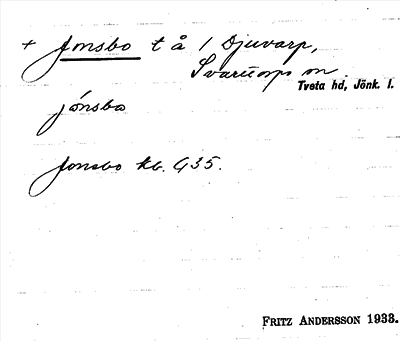 + Jonsbo t å / Djuvarp,
Svarttorps sn
Tveta hd, Jönk. l.
jónsbo
Jonsbo kb. G35.
FRITZ ANDERSSON 1933.